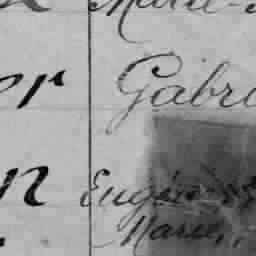 Marie-
er Gabri
n Eugén
Marie,